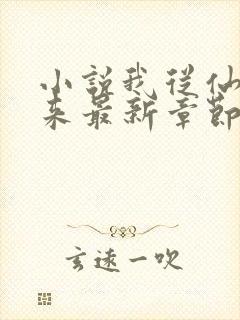 小說我從仙
来最新章節
玄遠一吹